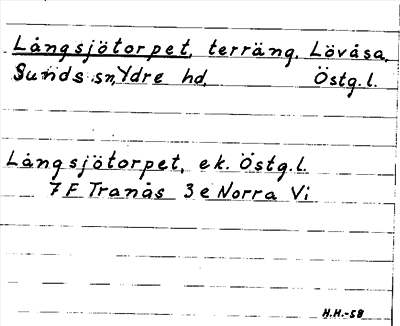 Långsjötorpet, terräng, Lövåsa,
Sunds sn, Ydre hd, Östg.l.
Långsjötorpet, ek. Östg.l.
7 F Tranås 3 e Norra Vi
H.H.-58